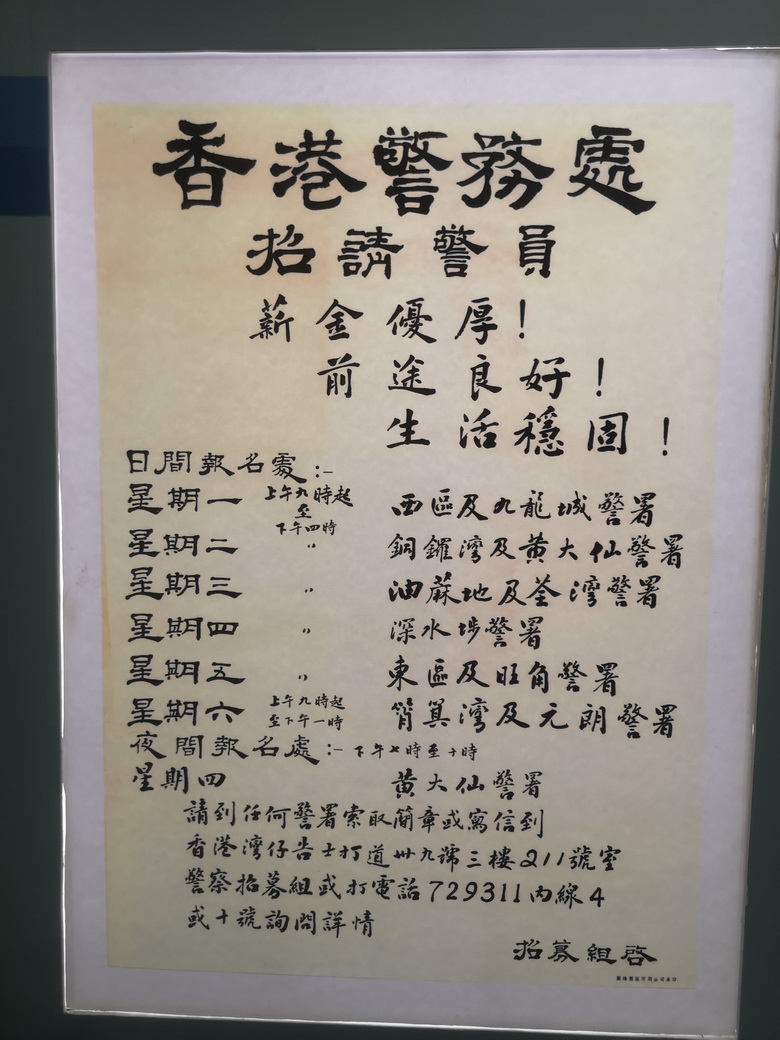 香港警務處
招請警員
薪金優厚!
前途良好!
生活穩固!
日間報名處:–
星期一 上午九時起至下午四時 西區及九龍城警署
星期二 〃 銅鑼灣及黃大仙警署
星期三 〃 油蔴地及荃灣警署
星期四 〃 深水埗警署
星期五 〃 東區及旺角警署
星期六 上午九時起至下午一時 筲箕灣及元朗警署
夜間報名處:– 下午七時至十時
星期四 黃大仙警署
請到任何警署索取簡章或寫信到
香港灣仔告士打道卅九號三樓211號室
警察招募組或打電話729311內線4
或十號詢問詳情
招募組啓